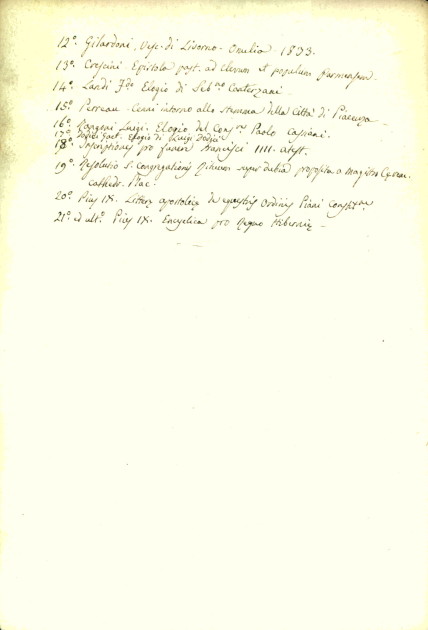 12º. Gilardoni, Vesc. di Livorno - Omelia 1833.
13º. Crescini Epistola past. ad clerum et populum Parmensem.
14º. Landi Elogio di Seb.no Canterzani -
15º. Perreau - Cenni intorno allo stemma della Città di Piacenza -
16º. Rangoni Luigi. Elogio del Paolo Cassiani.
17º Elogio di Luigi
18º. Inscriptiones pro funere Francisci IIII. atest.
19º. Resolutio S. Congregationis Rituum super dubia proposita a magistro Cærem.
cathedr. Plac:
20º. Pius IX. Litteræ apostolicæ de equestris Ordinis Piani
21º. ed ult.º Pius IX. Encyclica pro Regno Hiberniæ -